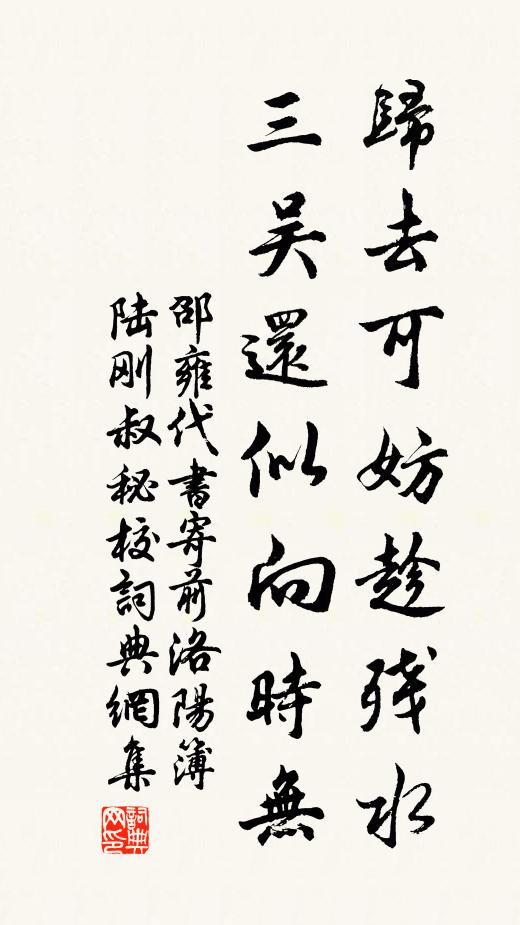 歸去可妨趁残水
三吴還似向時無
邵雍代書寄前洛陽簿
陆刚叔秘校詞典網集
詞典网印